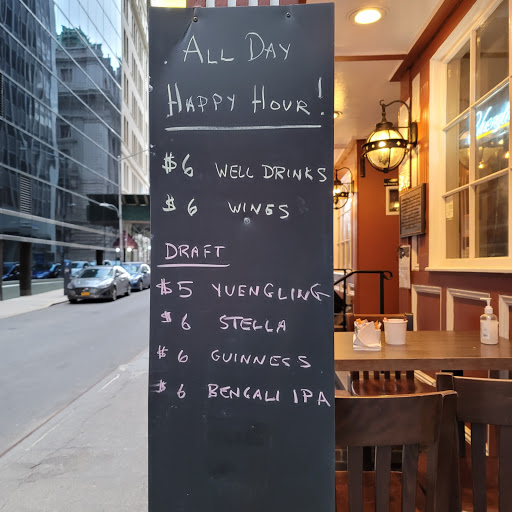 ALL DAY
HAPPY HOUR!
$6 WELL DRINKS
$6 WINES
DRAFT
$5 YUENGLING
$6 STELLA
$6 GUINNESS
$6 BENGALI IPA